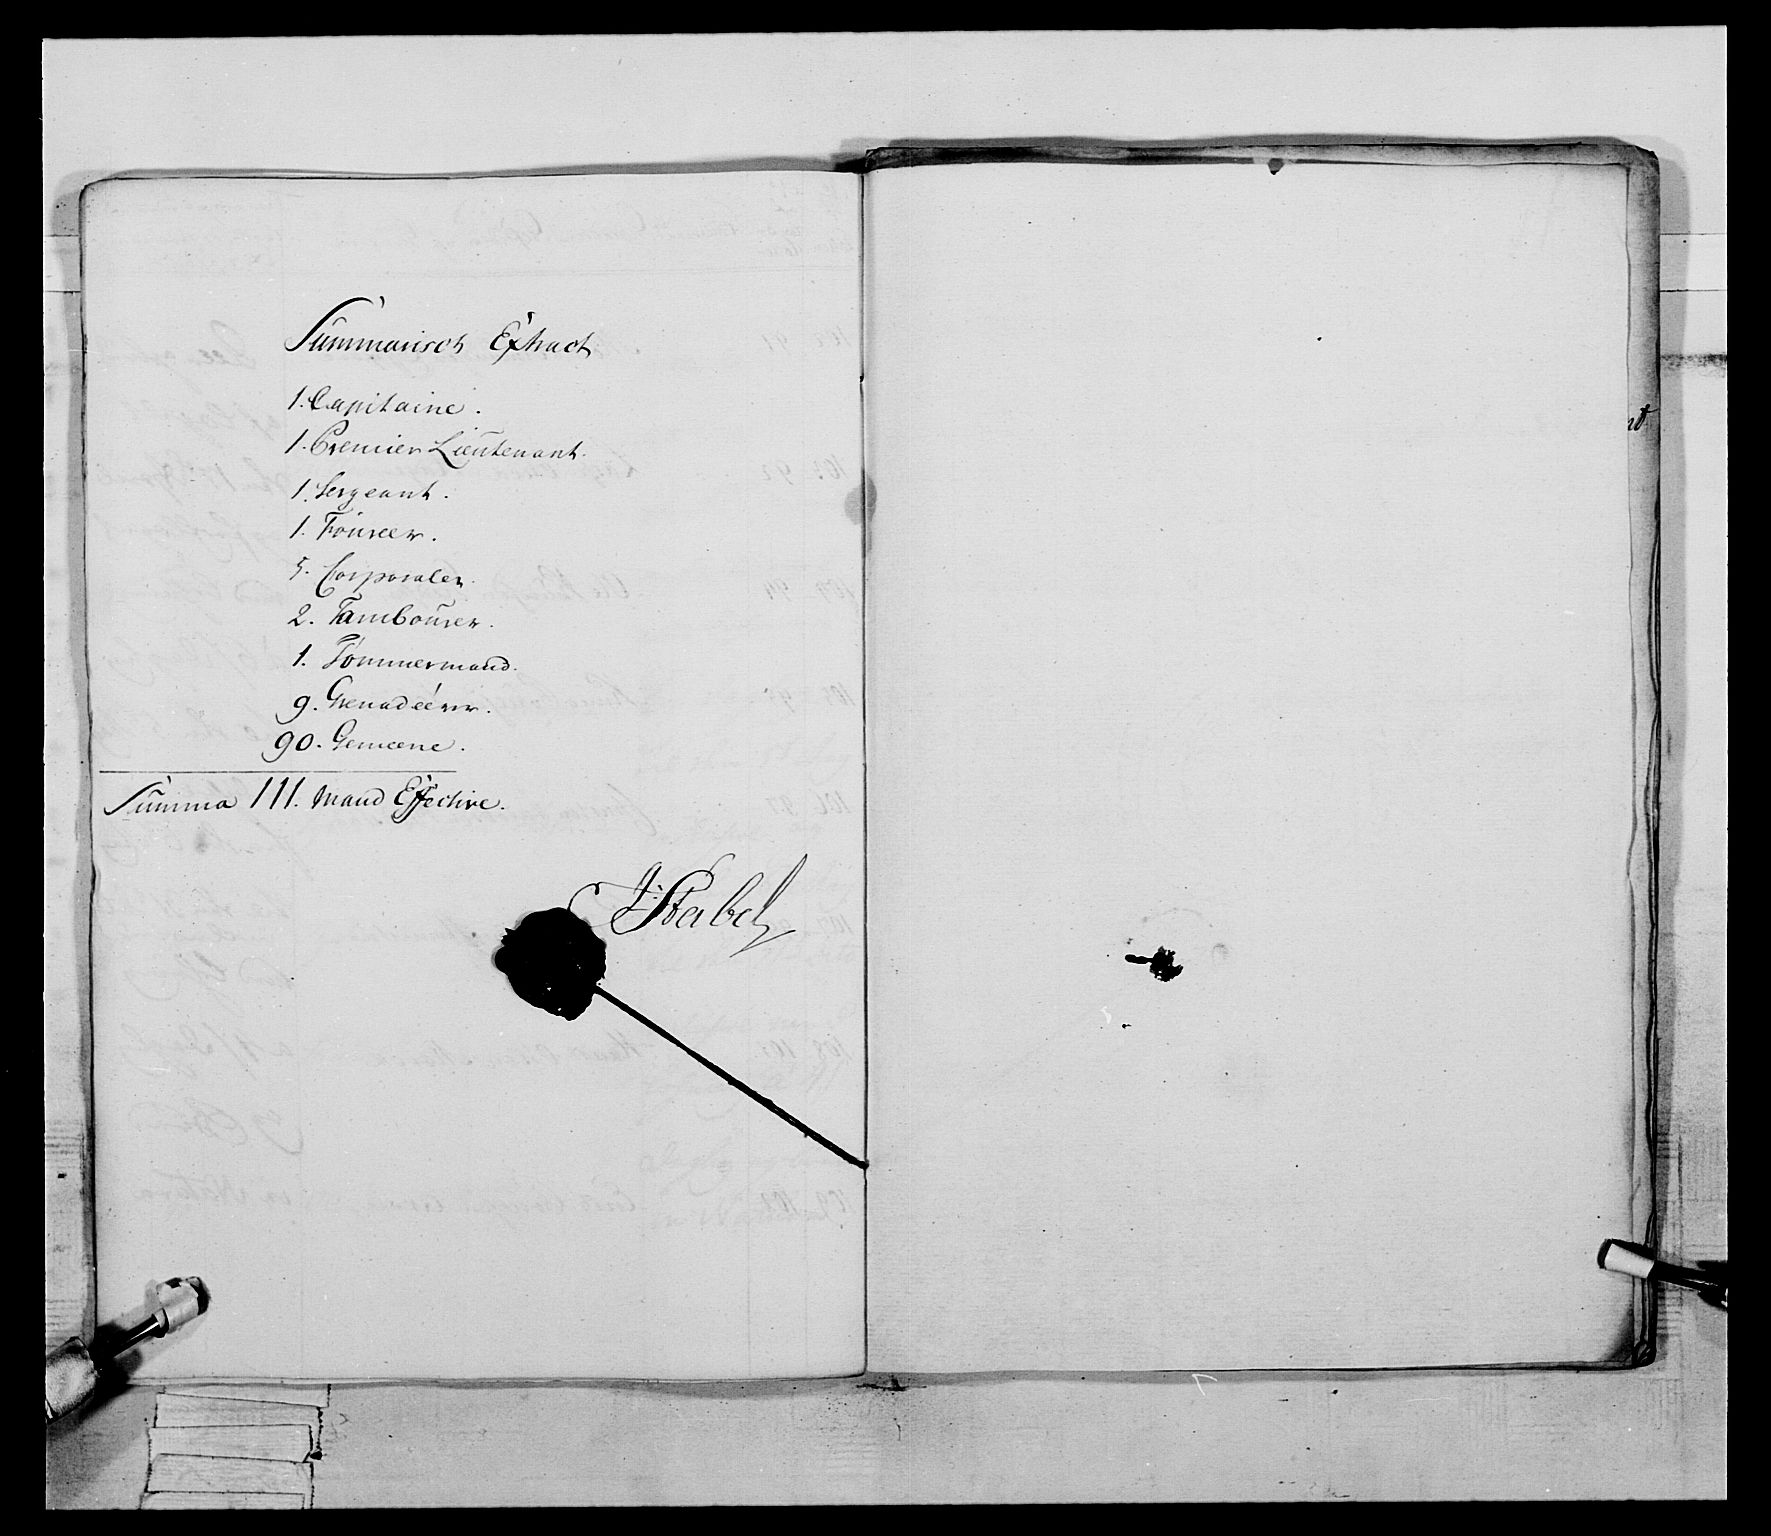 Summarisch Extract
1. Capitaine.
1. Premier Lieutenant.
1. Sergeant.
1. Foureer.
5. Corporaler.
2. Tambourer.
1. Tömmermand.
9. Grenadéérer.
90. Gemeene.
Summa 111. Mand Effective.
J: Stabel